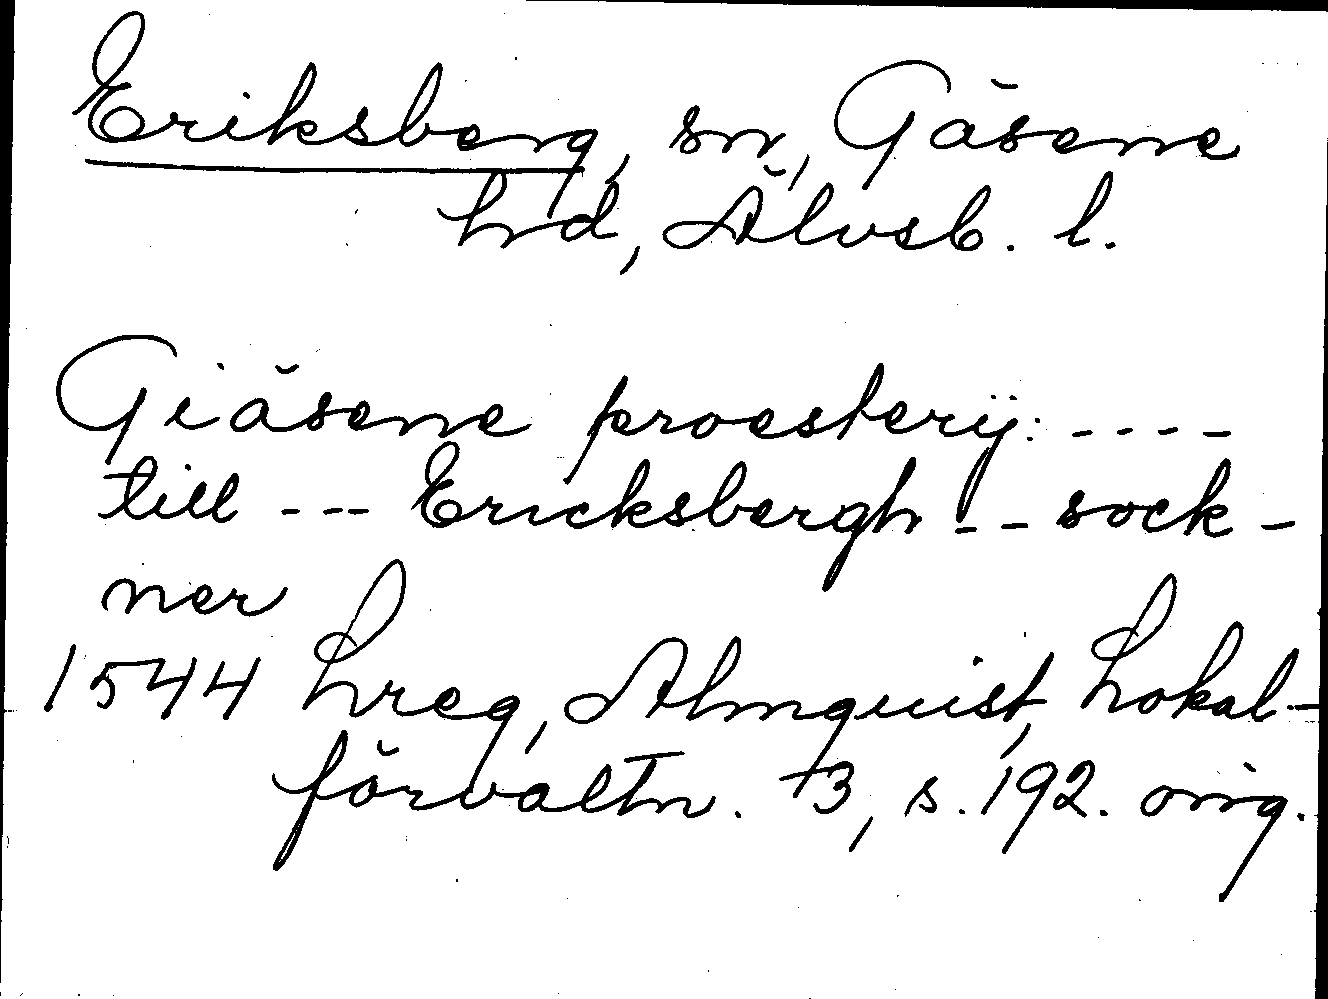 Eriksberg, sn, Gäsene
hd, Älvsb. l.
Giäsene proesterij: ----
till --- Ericksbergh -- sock-
ner
1544 Lreg, Almquist, Lokal-
förvaltn. 3, s. 192. orig.